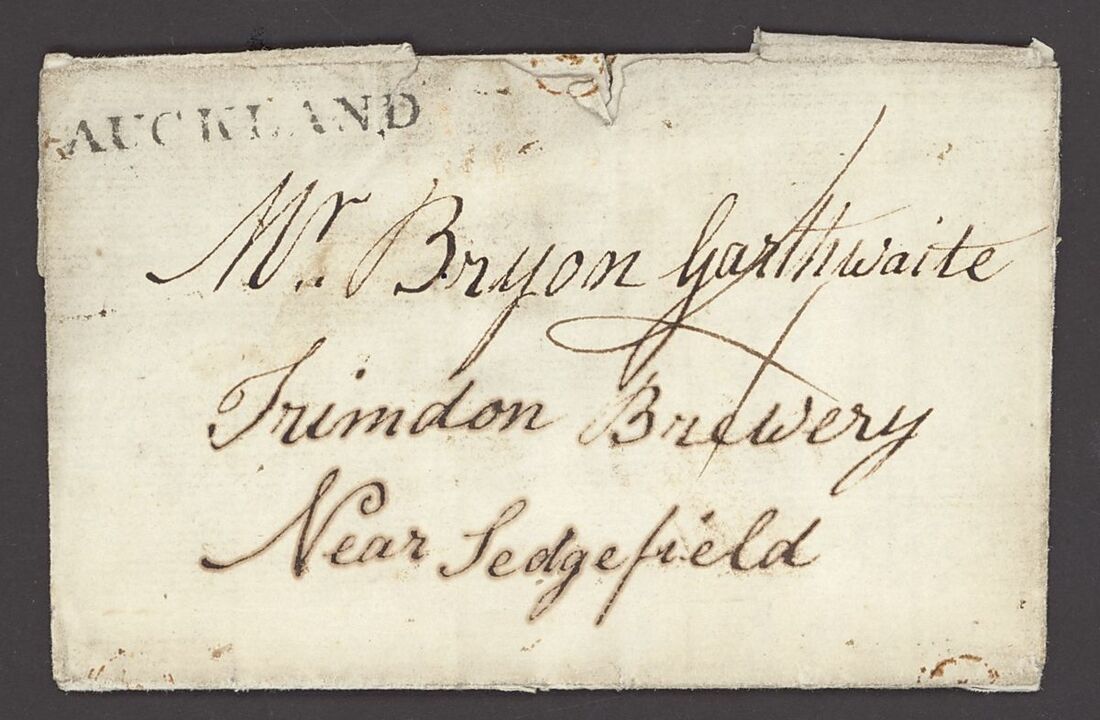 AUCKLAND
Mr. Bryon Garthwaite
Trimdon Brewery
Near Sedgefield